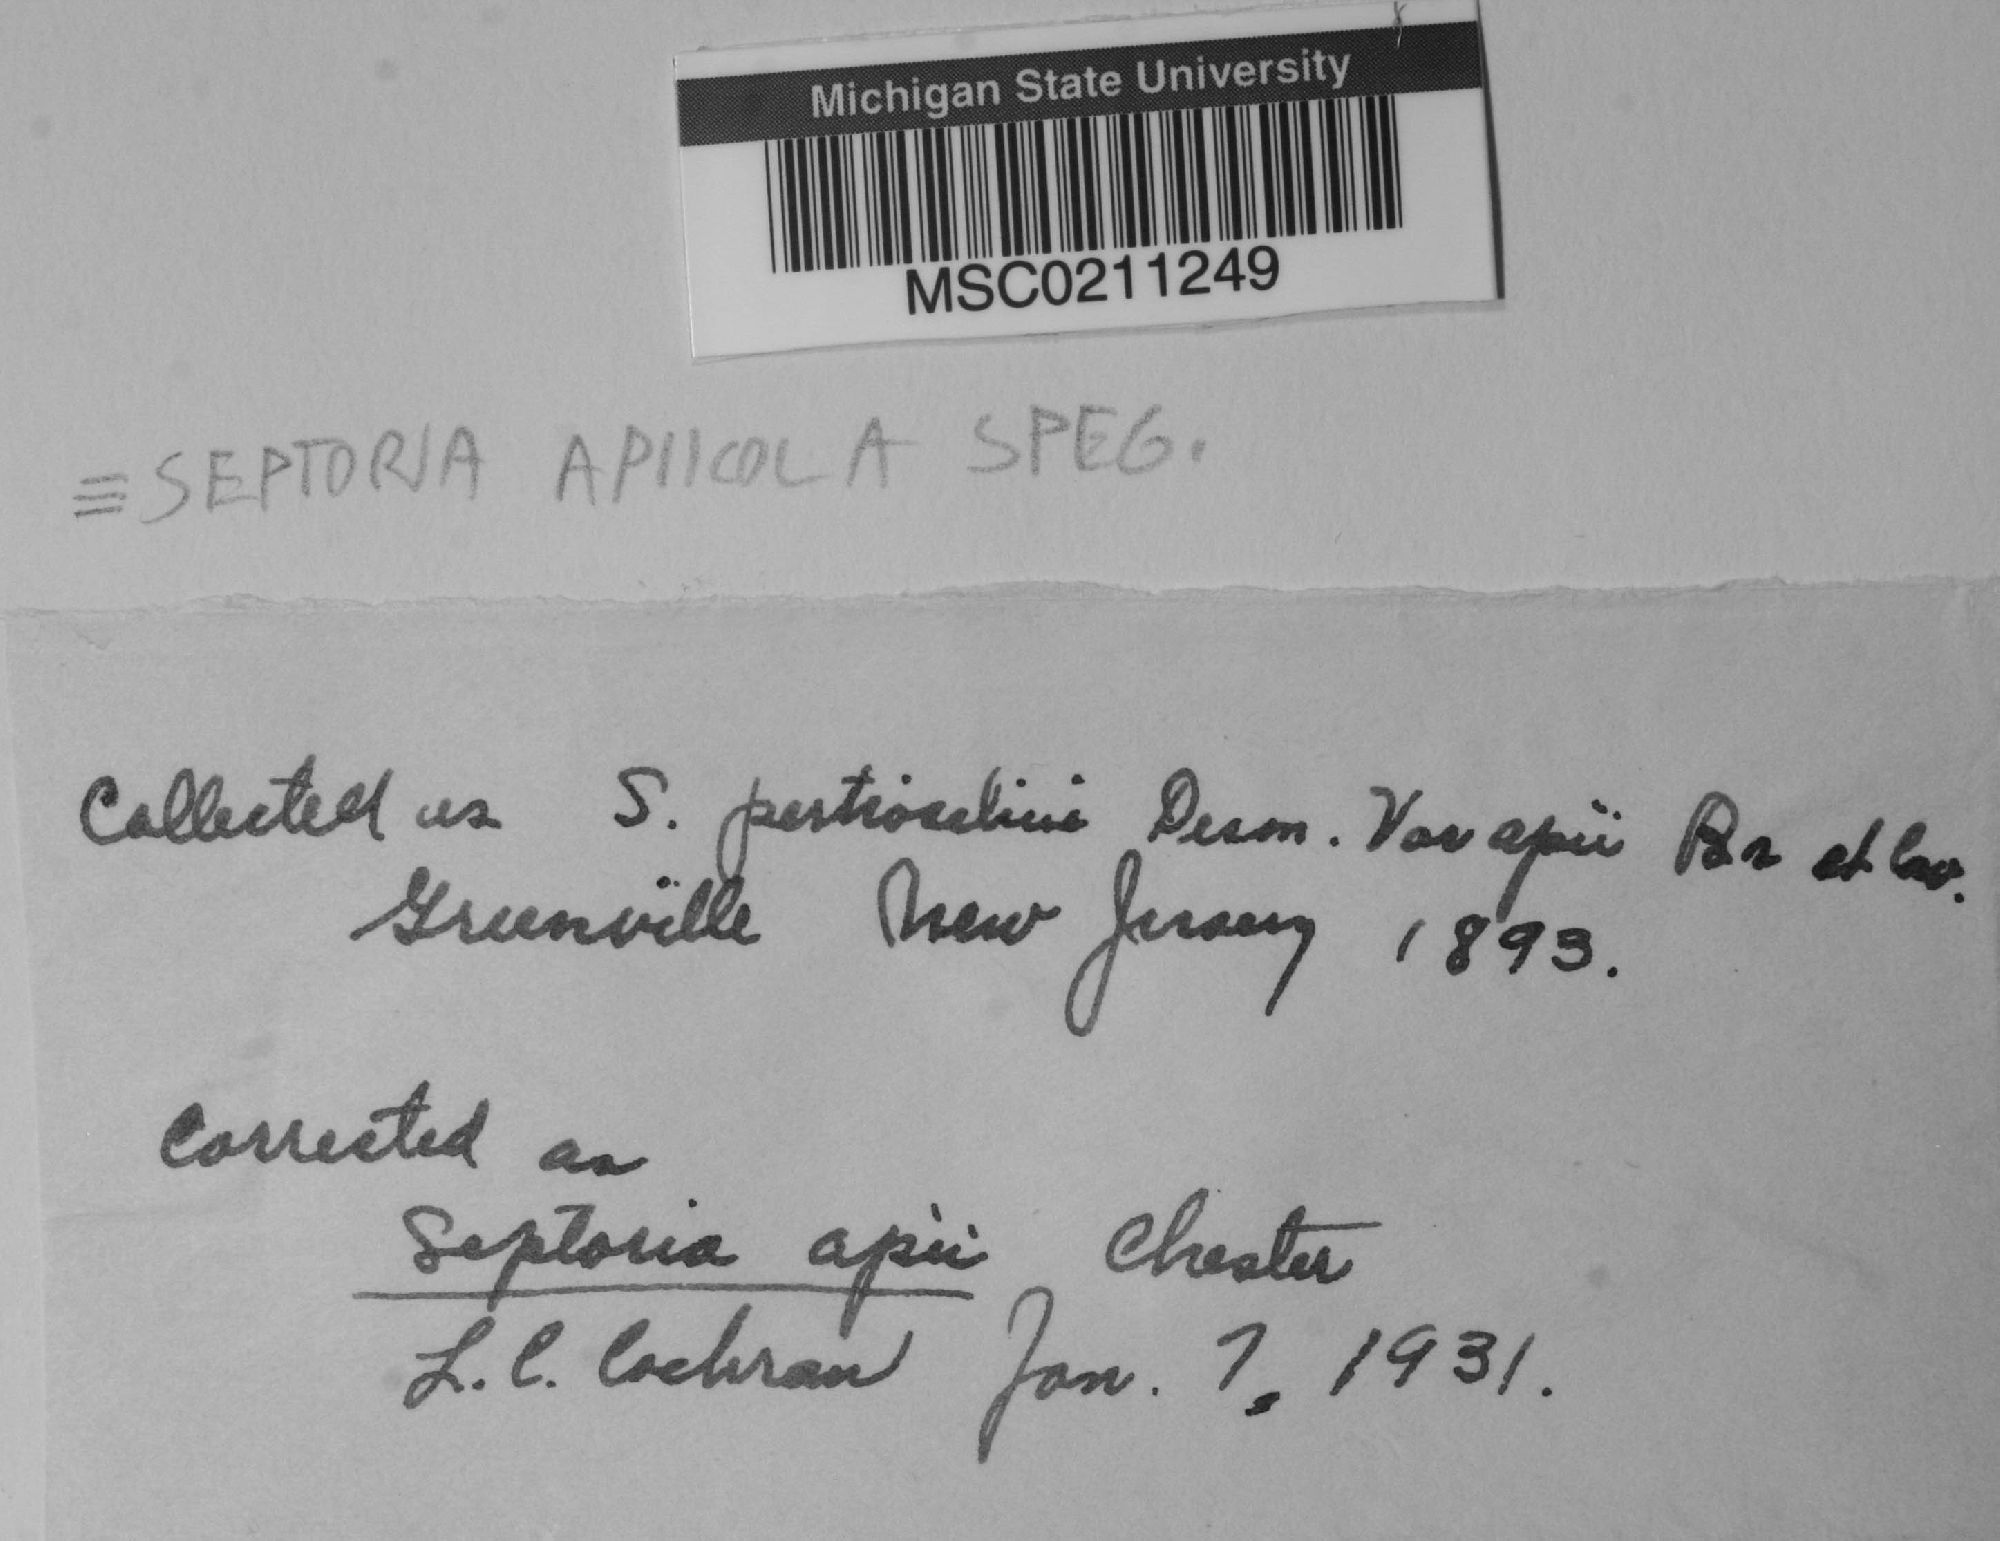 Michigan State University
MSC0211249
≡ SEPTORIA APIICOLA SPEG.
Collected as S. Desm. Var apii Br et Cav.
Greenville New Jersey 1893.
Corrected as
Septoria apii Chester
L. C. Cochran Jan. 7, 1931.